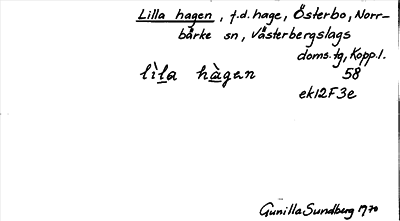 Lilla hagen, f.d. hage, Österbo, Norr-
bärke sn, Västerbergslags
doms.tg, Kopp.l.
lìla hàgan 58
ek12F3e
Gunilla Sundberg 1970